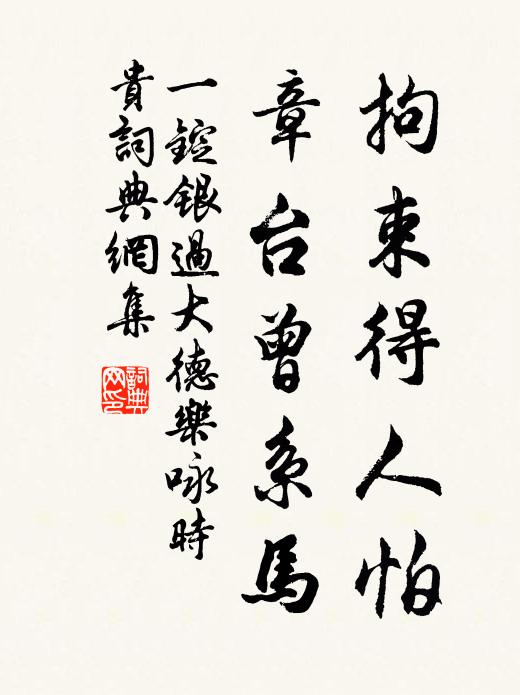 拘束得人怕
章台曾系馬
一錠銀過大德樂咏時
貴詞典網集
詞典網印